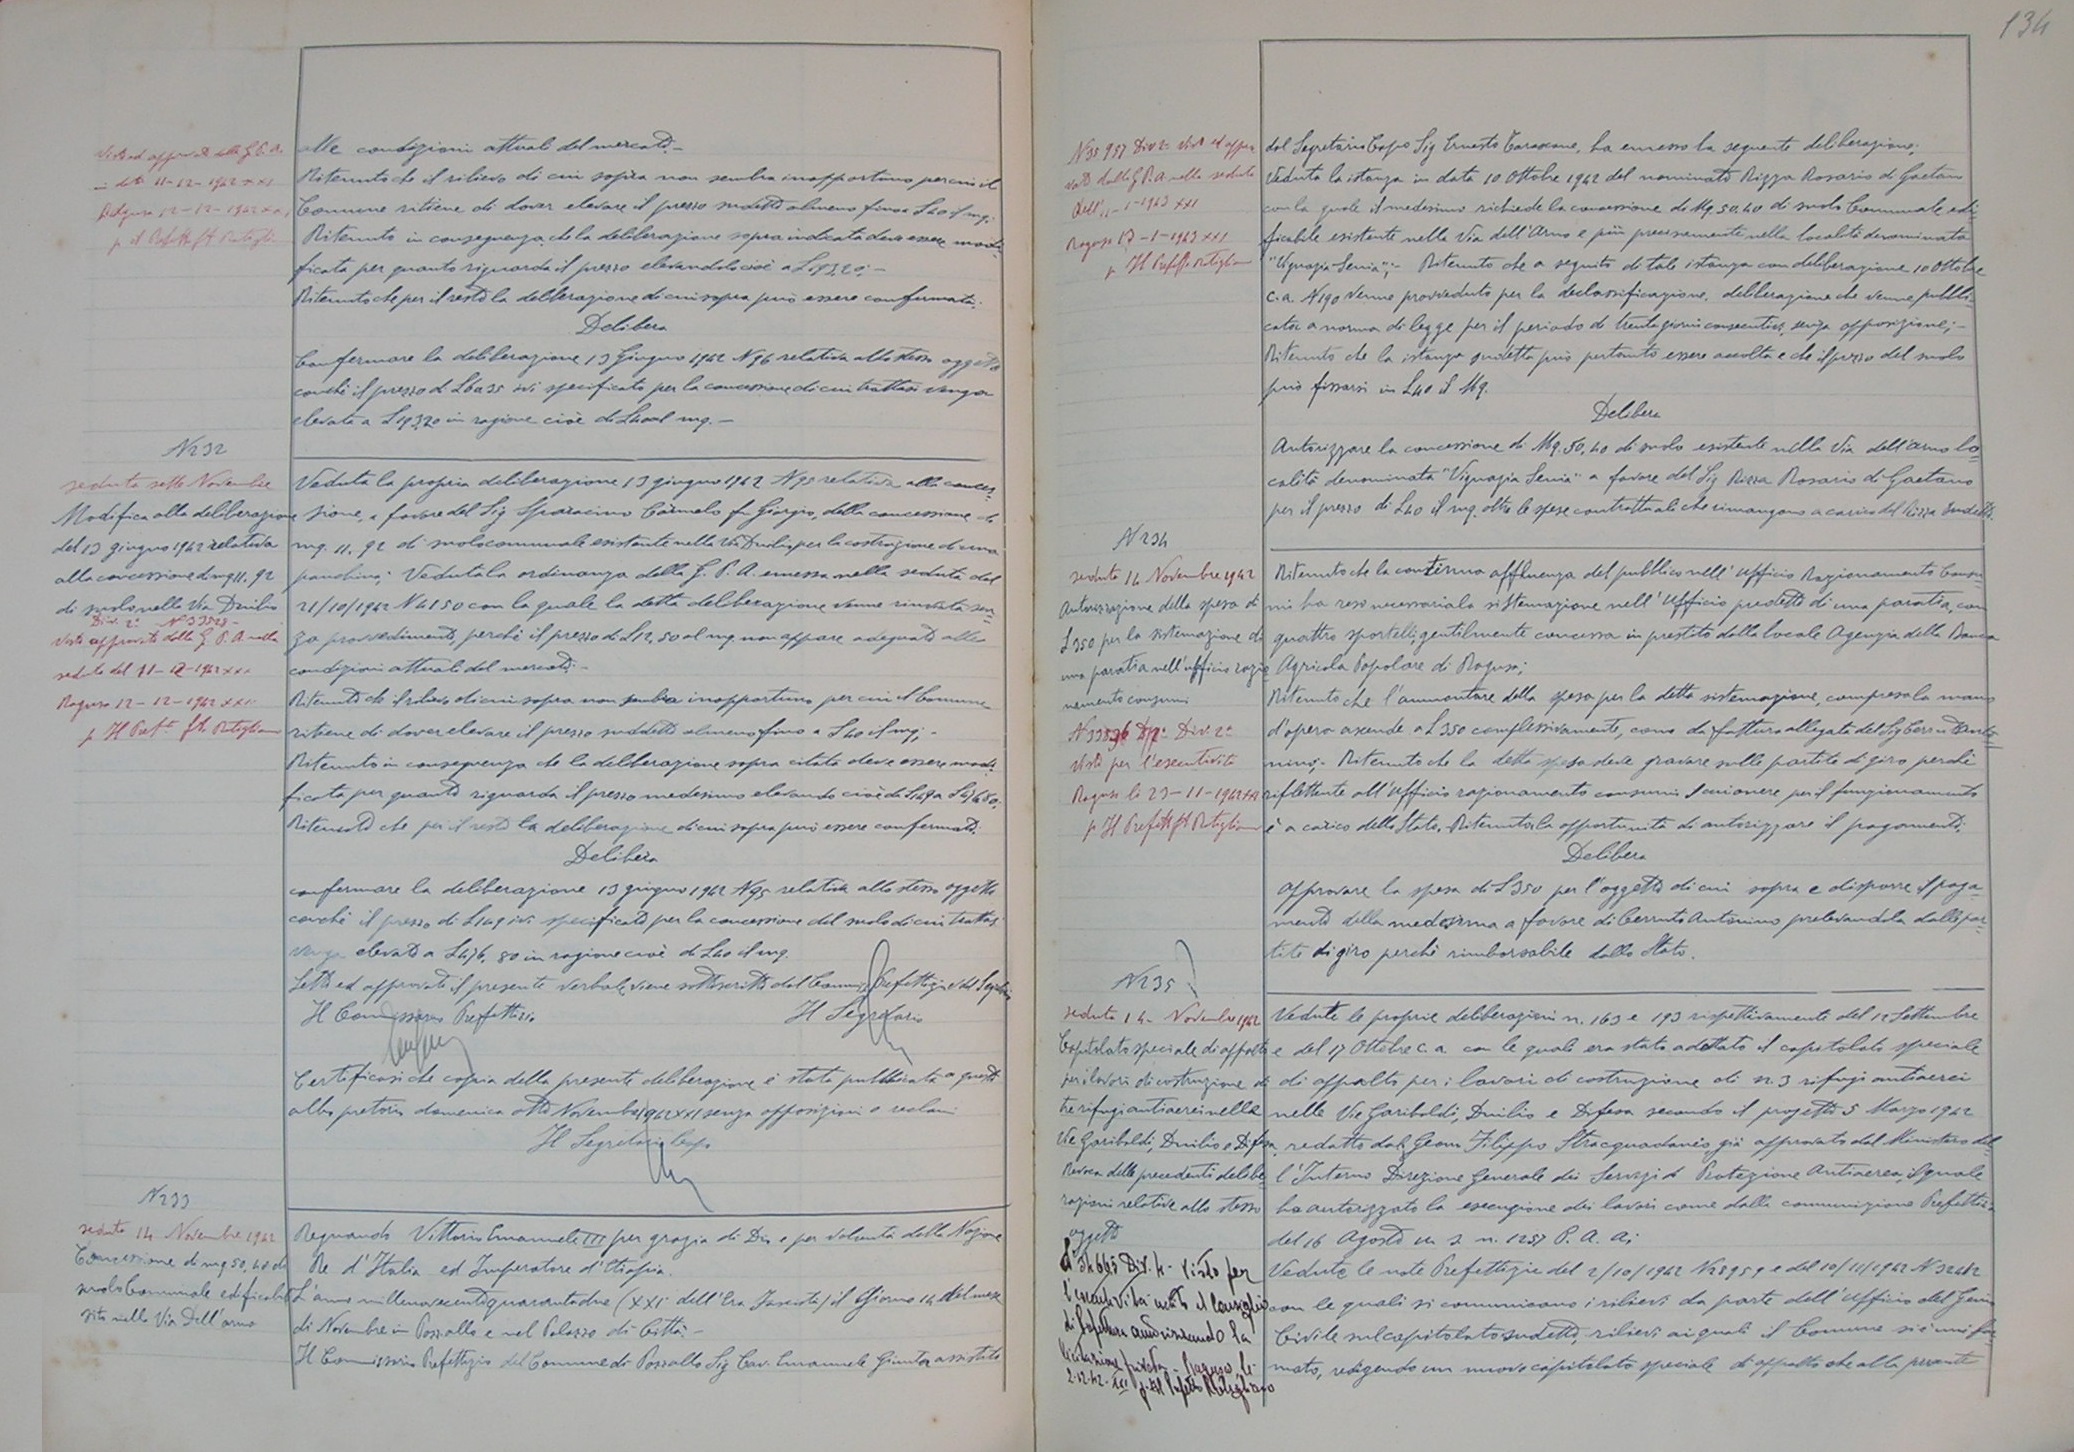 alle condizioni attuali del mercato.-
Ritenuto che il rilievo di cui sopra non sembra inopportuno per cui il
Comune ritiene di dover elevare il prezzo suddetto almeno fino a L 40 il mq.
Ritenuto in conseguenza che la deliberazione sopra indicata deve essere modi-
ficata per quanto riguarda il prezzo elevandolo cioè a
Ritenuto che per il resto la deliberazione di cui sopra può essere confermata.
Delibera
Confermare la deliberazione 13 Giugno 1942 N 96 relativa allo stesso oggetto
ivi specificato per la concessione di cui trattasi venga
elevato a in ragione cioè di L 40 al mq.-
Visto ed approvato dalla G.P.A.
in data 11-12-1942 XXI
Ragusa 12-12-1942 XXI
p. il Prefetto
N 232
seduta sette Novembre
Modifica alla deliberazione
del 13 giugno 1942 relativa
alla concessione di mq 11,92
di suolo nella Via Duilio
Div. 2ª N° 33525-
Visto approvato dalla G.P.A. nella
seduta del 11-12-1942 XXI
Ragusa 12-12-1942 XXI
p. Il Pref.
Veduta la propria deliberazione 13 giugno 1942 N 95 relativa alla conces-
sione, a favore del Sig Sparacino Carmelo fu Giorgio, della concessione di
mq. 11,92 di suolo comunale esistente nella Via Duilio per la costruzione di una
panchina; Veduta la ordinanza della G.P.A. emessa nella seduta del
21/10/1942 N 4150 con la quale la detta deliberazione venne rinviata sen-
za provvedimenti, perchè il prezzo di L 12,50 al mq non appare adeguato alle
condizioni attuali del mercato;-
Ritenuto che il rilievo di cui sopra non sembra inopportuno per cui il Comune
ritiene di dover elevare il prezzo suddetto almeno fino a L 40 il mq;-
Ritenuto in conseguenza che la deliberazione sopra citata deve essere modi-
ficata, per quanto riguarda il prezzo medesimo elevando cioè da L 149 a L 476,80;
Ritenuto che per il resto la deliberazione di cui sopra può essere confermata.
Delibera
confermare la deliberazione 13 giugno 1942 N 95 relativa allo stesso oggetto
perchè il prezzo di L 149 ivi specificato per la concessione del suolo di cui trattasi
venga elevato a L 476,80 in ragione cioè di L 40 il mq.
Letto ed approvato il presente verbale viene sottoscritto dal Commis. Prefettizio e dal Segretario
Il Commissario Prefettizio Il Segretario
Certificasi che copia della presente deliberazione è stata pubblicata a questo
albo pretorio domenica otto Novembre 1942 XXI senza opposizioni o reclami
Il Segretario Capo
N 233
seduta 14 Novembre 1942
Concessione di mq 50,40 di
suolo Comunale edificabile
sito nella Via Dell'arno
Regnando Vittorio Emanuele III per grazia di Dio e per volontà della Nazione
Re d'Italia ed Imperatore d'Etiopia.
L'anno millenovecentoquarantadue (XXI dell'Era Fascista) il Giorno 14 del mese
di Novembre in Pozzallo e nel Palazzo di Città;-
Il Commissario Prefettizio del Comune di Pozzallo Sig Cav. Emanuele Giunta assistito
134
N 35957 Div 2ª Visto ed appro-
vato dalla G.P.A. nella seduta
dell'11-1-1943 XXI
Ragusa -1-1943 XXI
p. Il Prefetto
dal Segretario Capo Sig Ernesto Tarascone, ha emesso la seguente deliberazione;
Veduta la istanza in data 10 Ottobre 1942 del nominato Rizza Rosario di Gaetano
con la quale il medesimo richiede la concessione di Mq. 50,40 di suolo Comunale edi-
ficabile esistente nella Via dell'Arno e più precisamente nella località denominata
"Vignazia Senia";- Ritenuto che a seguito di tale istanza con deliberazione 10 Ottobre
c.a. N 190 venne provveduto per la declassificazione, deliberazione che venne pubbli-
cata a norma di legge per il periodo di trenta giorni consecutivi, senza opposizione;-
Ritenuto che la istanza suddetta può pertanto essere accolta e che il prezzo del suolo
può fissarsi in L 40 il Mq.
Delibera
Autorizzare la concessione di Mq. 50,40 di suolo esistente nella Via dell'arno lo-
calità denominata "Vignazia Senia" a favore del Sig Rizza Rosario di Gaetano
per il prezzo di L 40 il mq. oltre le spese contrattuali che rimangono a carico del Rizza suddetto.
N 234
seduta 14 Novembre 1942
Autorizzazione della spesa di
L 350 per la sistemazione di
una paratia nell'ufficio razio-
namento consumi
N 33596 Div. 2ª
Visto per l'esecutività
Ragusa li 23-11-1942 XXI
p. Il Prefetto
Ritenuto che la continua affluenza del pubblico nell'Ufficio Razionamento Consu-
mi ha reso necessaria la sistemazione nell'Ufficio predetto di una paratia, con
quattro sportelli, gentilmente concessa in prestito dalla locale Agenzia della Banca
Agricola Popolare di Ragusa;
Ritenuto che l'ammontare della spesa per la detta sistemazione, compresa la mano
d'opera ascende a L 350 complessivamente, come da fattura allegata del Sig Cerruto Anto-
nino;- Ritenuto che la detta spesa deve gravare sulle partite di giro perchè
riflettente all'Ufficio razionamento consumi il cui onere per il funzionamento
è a carico dello Stato. Ritenuta la opportunità di autorizzare il pagamento.
Delibera
Approvare la spesa di L 350 per l'oggetto di cui sopra e disporre il paga-
mento della medesima a favore di Cerruto Antonino prelevandola dalle par-
tite di giro perchè rimborsabile dallo Stato.
N 235
seduta 14 Novembre 1942
Capitolato speciale di appalto
per i lavori di costruzione di
tre rifugi antiaerei nelle
Vie Garibaldi, Duilio e Difesa,
Revoca delle precedenti delibe-
razioni relative allo stesso
oggetto
N 34665 Div. 4- Visto per
l'esecutività udito il Consiglio
di Prefettura autorizzando la
licitazione privata - Ragusa, li
2.12.42. XXI p. Il Prefetto
Vedute le proprie deliberazioni n. 163 e 193 rispettivamente del 12 Settembre
e del 17 Ottobre c.a. con le quali era stato adottato il capitolato speciale
di appalto per i lavori di costruzione di n. 3 rifugi antiaerei
nelle Vie Garibaldi, Duilio e Difesa secondo il progetto 5 Marzo 1942
redatto dal Geom Filippo Stracquadaneo già approvato dal Ministero del-
l'Interno Direzione Generale dei Servizi di Protezione Antiaerea, il quale
ha autorizzato la esecuzione dei lavori come dalla comunicazione Prefettizia
del 16 Agosto u.s. n. 1257 P.A.A;
Vedute le note Prefettizie del 2/10/1942 N 28959 e del 10/11/1942 N 32482
con le quali si comunicano i rilievi da parte dell'ufficio del Genio
Civile sul capitolato suddetto, rilievi ai quali il Comune si è unifor-
mato, redigendo un nuovo capitolato speciale di appalto che alla presente